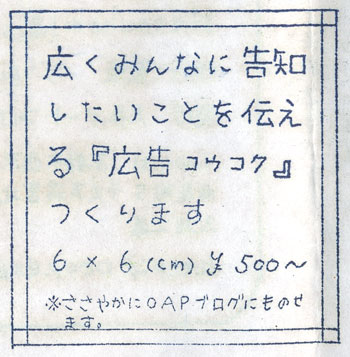 広くみんなに告知
したいことを伝え
る『広告コウコク』
つくります
6×6(cm)¥500〜
※ささやかにOAPブログにものせ
ます。